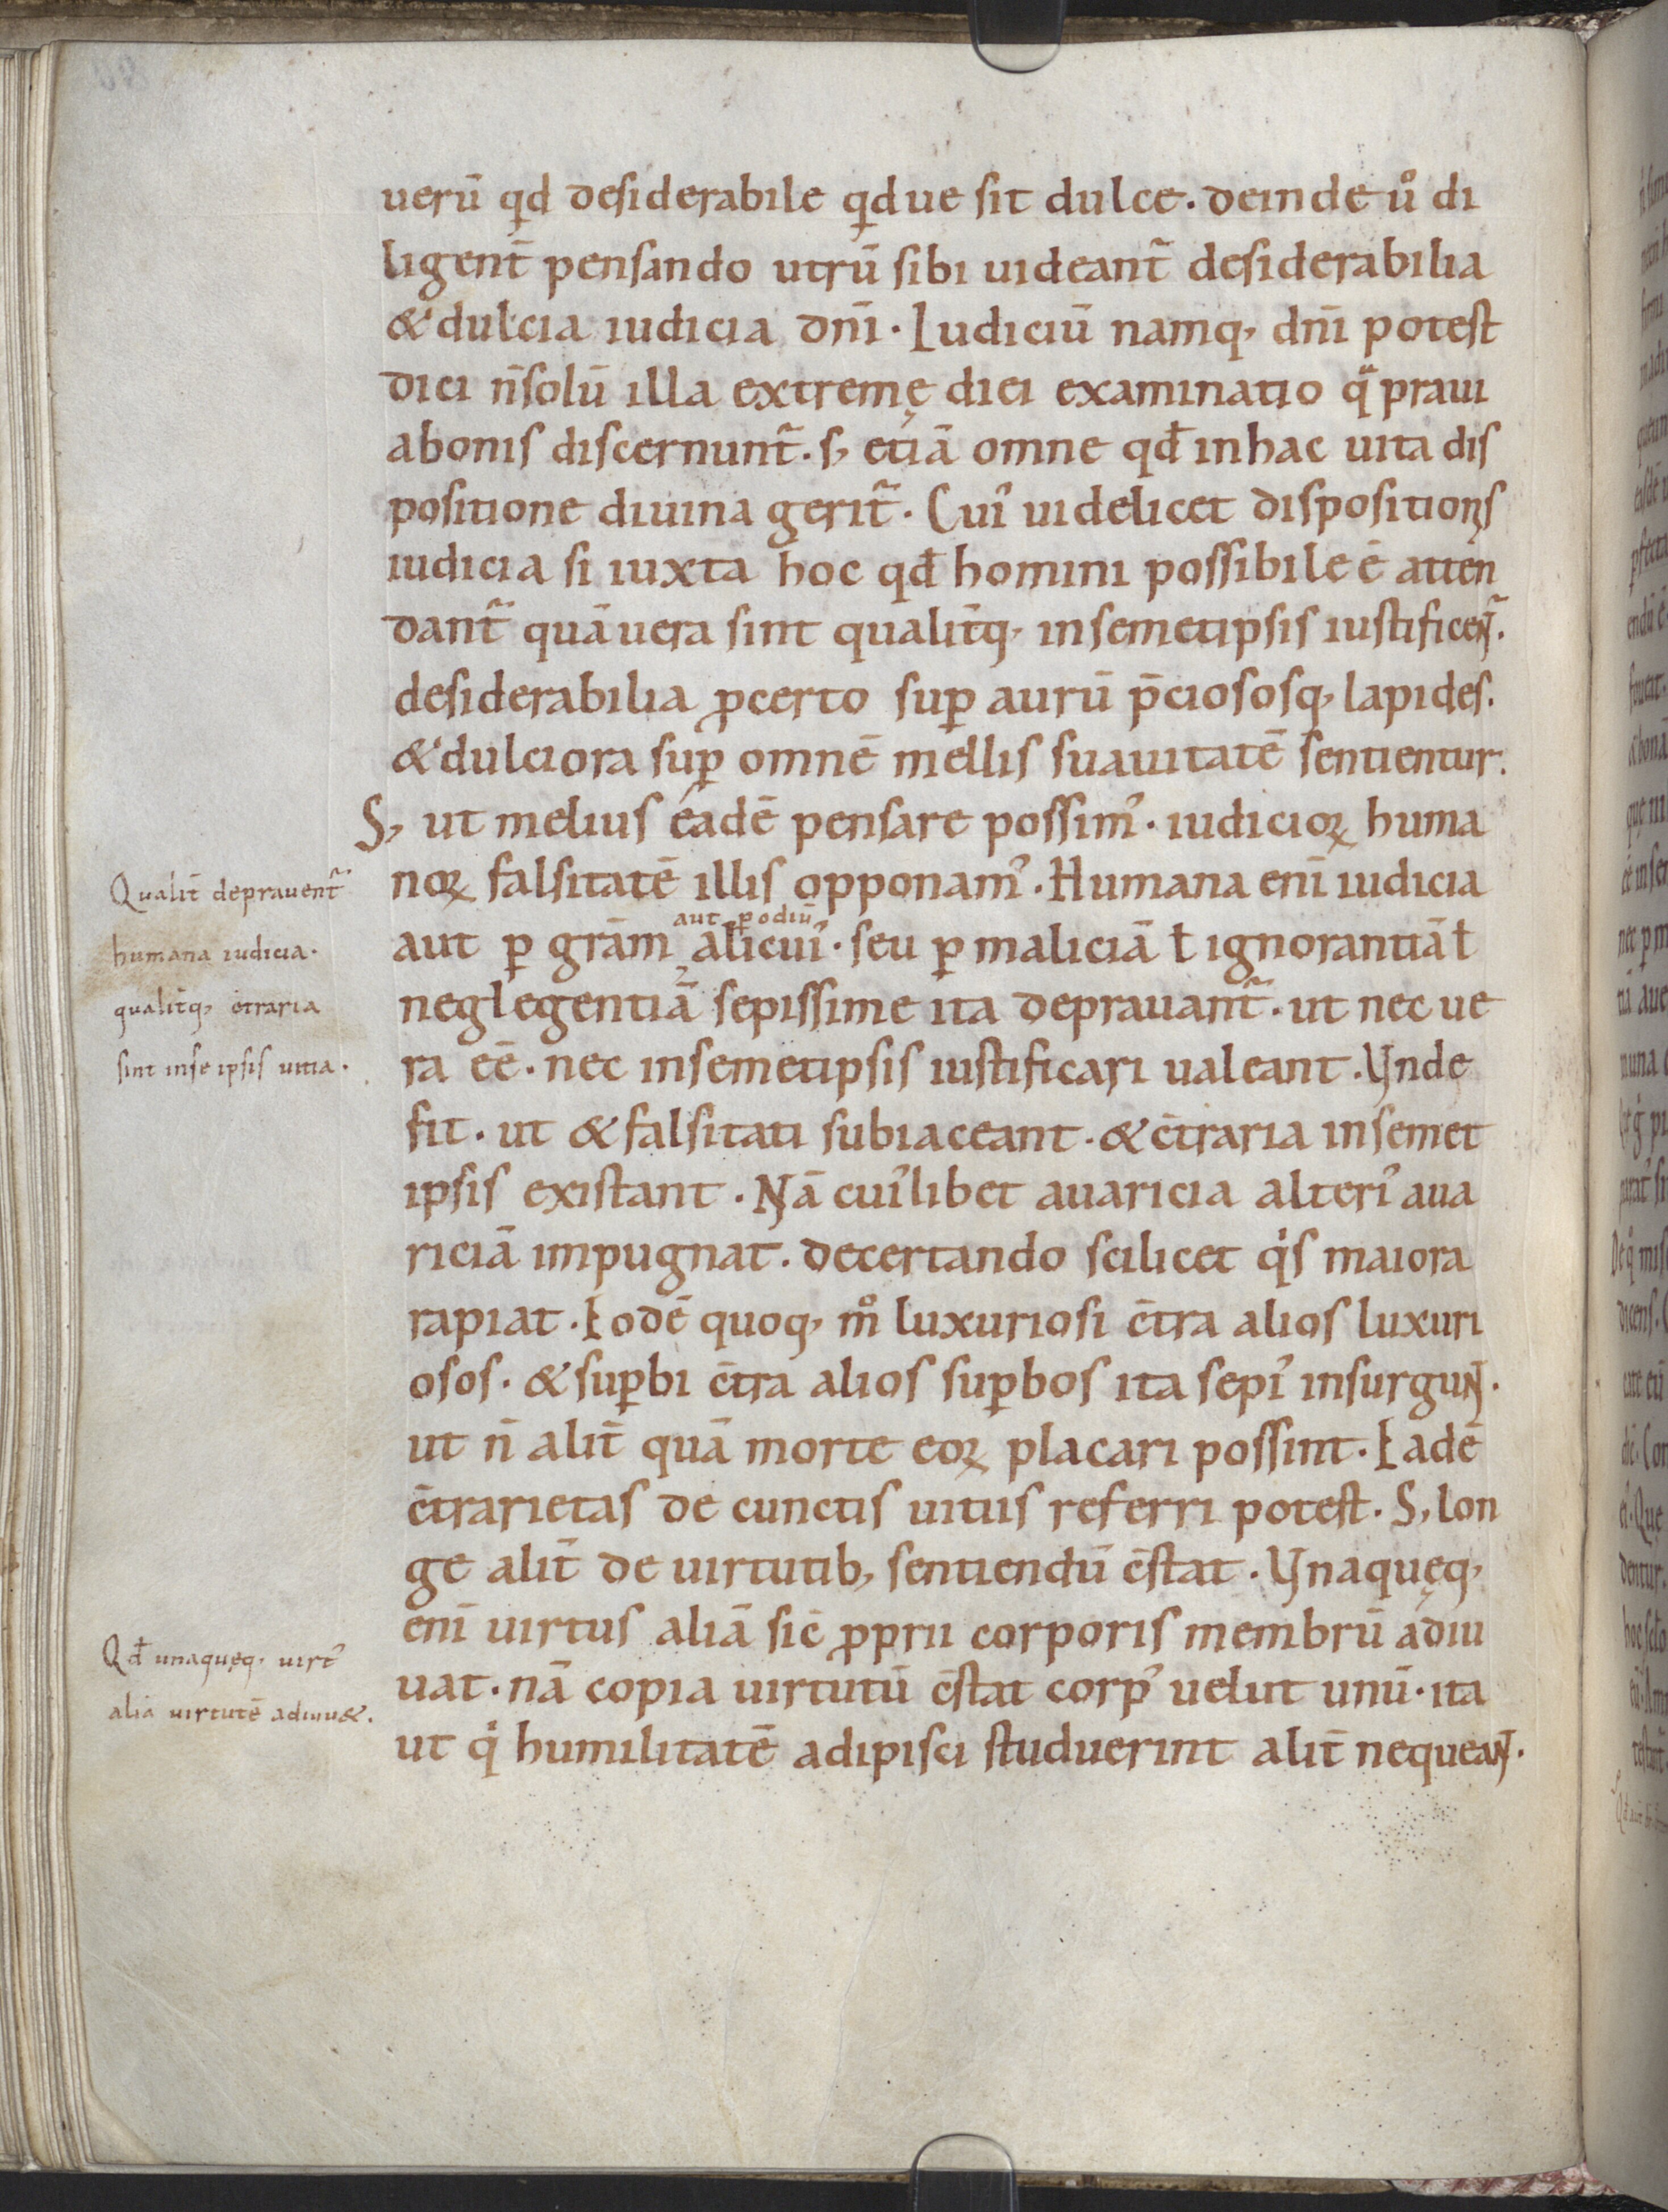 uerū qd desiderabile qd ue sit dulce. deinde uͦ di
ligent̄ pensando utrū sibi uideant᷑ desiderabilia
& dulcia iudicia dn̄i. Iudiciū namq, dn̄i potest
dici n̄ solū illa extremę diei examinatio qͣ praui
abonis discernunt᷑. s, etiā omne qđ inhac uita dis
positione diuina gerit᷑. Cuiꝰ uidelicet dispositionꝭ
iudicia si iuxta hoc qđ homini possibile ē atten
dant᷑ quā uera sint qualit̄q, insemetipsis iustificent᷑.
desiderabilia ꝓcerto suꝑ aurū p̄ciososq, lapides.
& dulciora suꝑ omnē mellis suauitatē sentientur.
S, ut melius eadē pensare possimꝰ. iudicioꝝ huma
noꝝ falsitatē illis opponamꝰ. Humana eni̅ iudicia
aut ꝑ odiū
aut ꝑ gr̄am, alicuiꝰ. seu ꝑ maliciā ł ignorantiā ł
neglegentiā sepissime ita deprauant᷑. ut nec ue
ra eē. nec insemetipsis iustificari ualeant. Vnde
fit. ut & falsitati subiaceant. & c̄traria insemet
ipsis existant. Nā cuiꝰlibet auaricia alteriꝰ aua
riciā impugnat. decertando scilicet qͥs maiora
rapiat. Eodē quoq, mͦ luxuriosi c̄tra alios luxuri
osos. & suꝑbi c̄tra alios suꝑbos ita sepiꝰ insurgunt.
ut n̄ alit̄ quā morte eoꝝ placari possint. Eadē
c̄trarietas de cunctis uitiis referri potest. S, lon
ge alit̄ de uirtutib, sentiendū c̄stat. Vnaquęq,
eni̅ uirtus aliā sic̄ ꝓprii corporis membrū adiu
uat. nā copia uirtutū c̄stat corpꝰ uelut unū. ita
ut qͥ humilitatē adipisci studuerint alit̄ nequeant.
Qualit̄ deprauent᷑
humana iudicia.
qualit̄q, c̄traria
sint inse ipsis uitia.
Qđ unaquęq. uirtꝰ
aliā uirtutē adiuu&.